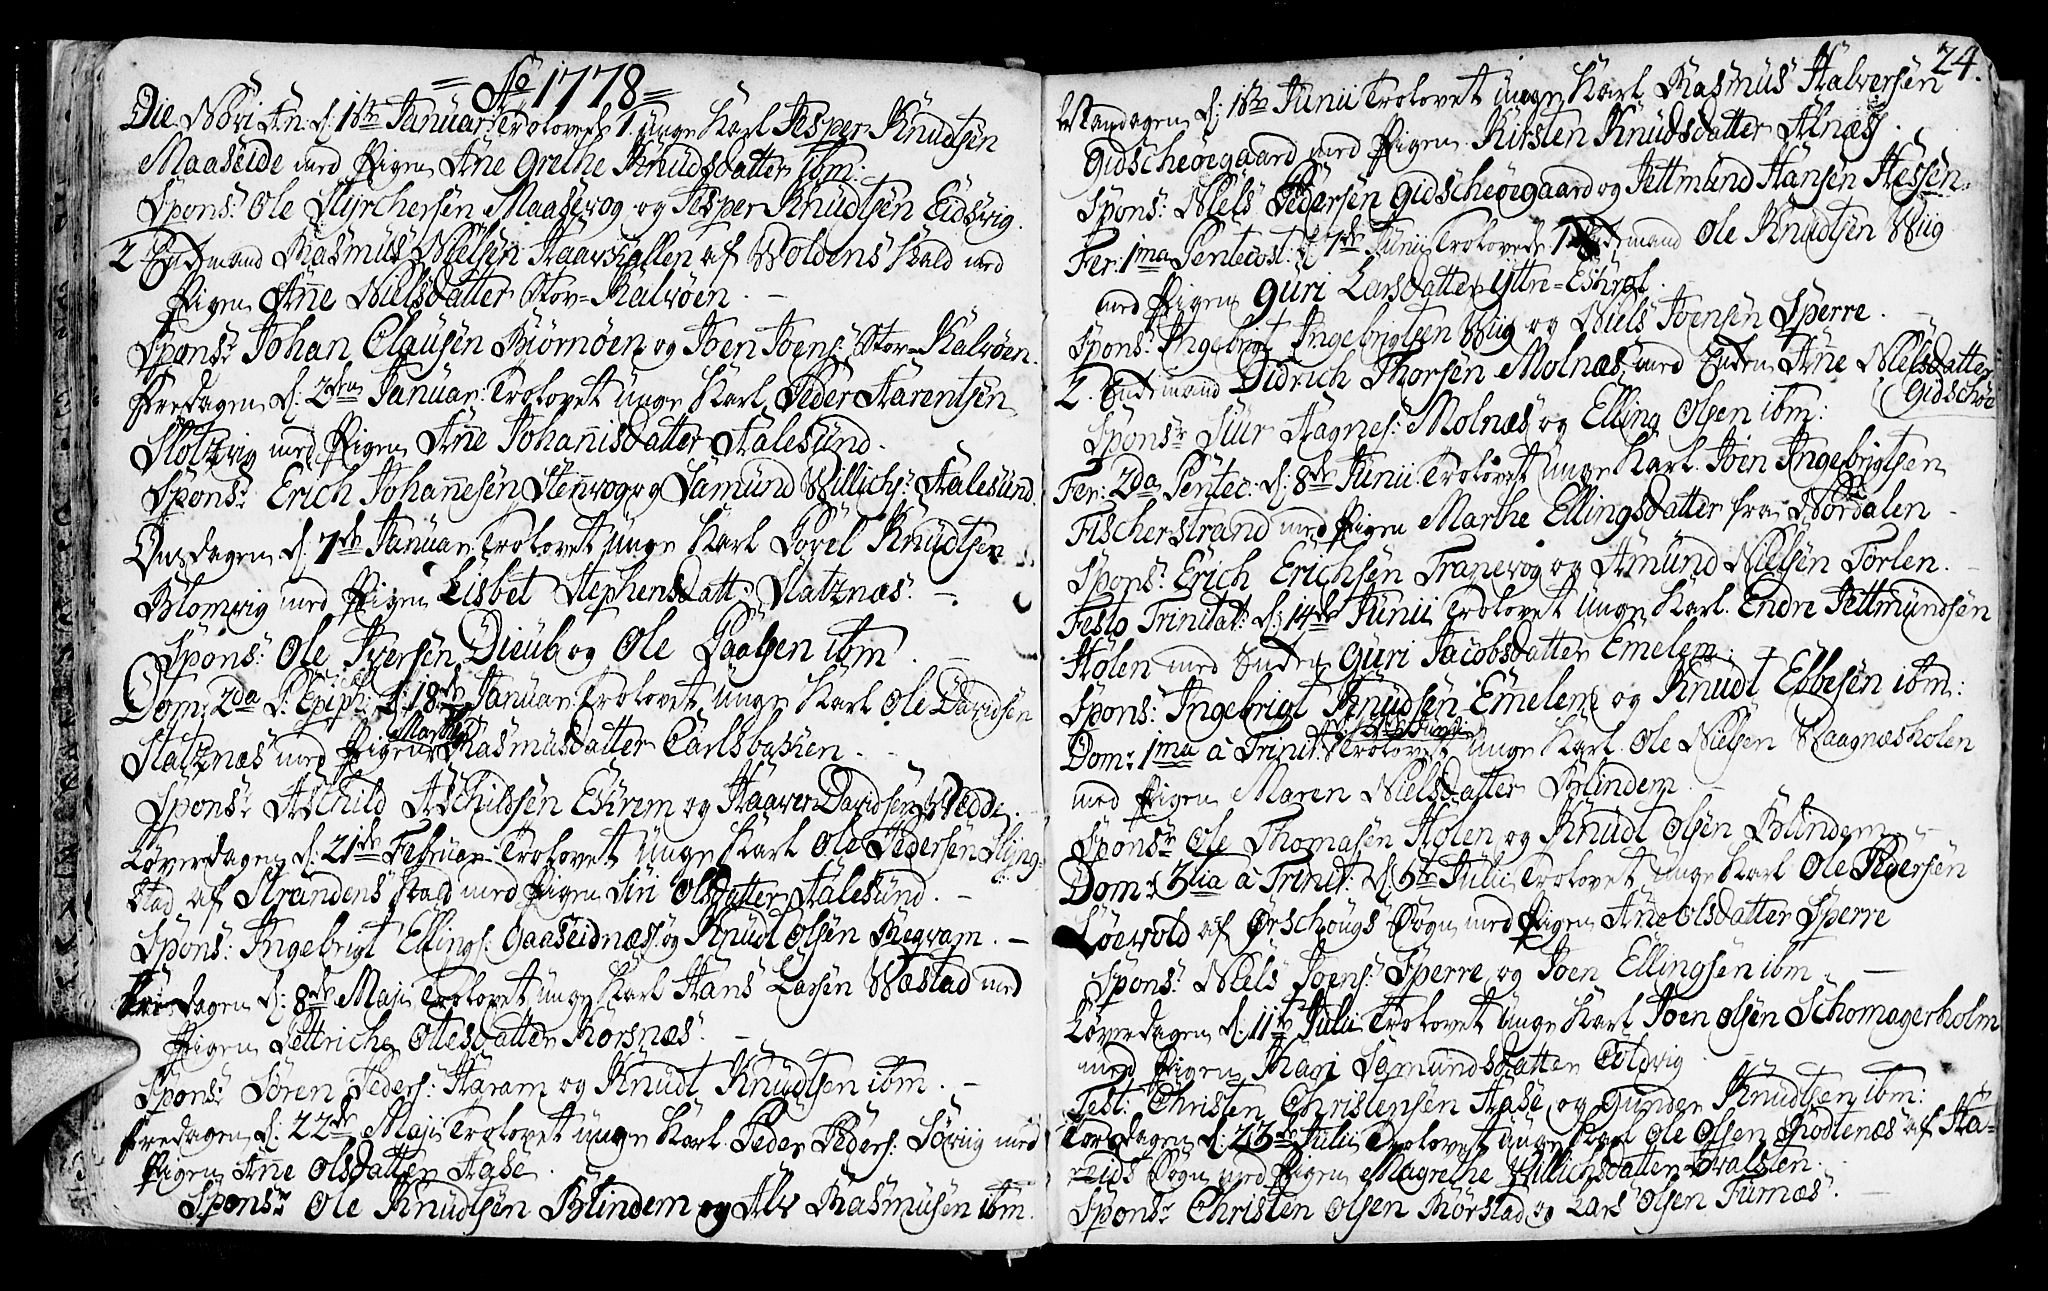 = Ao 1778 =
Die Novi An. d: 1ste Januar: Trolovede 1. unge Karl Jesper Knudtsen
Maaseide med Pigen Ane Grethe Knudsdatter ibm:
Spons: Ole Styrchersen Maasevog og Jesper Knudtsen Eidsvig.
2 Enckemand Rasmus Nielsen Haavkallen af Woldens Kald med
Pigen Ane Nielsdatter Stor-Kalvøen. -
Sponsr Johan Clausen Biørnøen og Joen Joens: Stor-Kalvøen.
Fredagen d: 2den Januar: Trolovet unge Karl Peder Aarentsen
Slotzvig med Pigen Ane Johanisdatter Aalesund.
Sponsr Erich Johannesen Stenvog og Samund Willichs: Aalesund.
Onsdagen d: 7de Januar: Trolovet unge Karl Povel Knudtsen
Blomvig med Pigen Lisbet Stephensdatt: Slatznæs. -
Spons: Ole Iversen Dieub og Ole Paalsen ibm. -
Dom: 2da p: Epiph: d: 18de Januar: Trolovet unge Karl Ole Davidsen
Slatznæs med Pigen Marthe Rasmusdatter Carlsbakken. -
Sponsr Aschild Aschildsen Eskrem og Haaver Davidsen Wedde. -
Løverdagen d: 21de Februar: Trolovet unge Karl Ole Pedersen Slyng-
stad af Strandens Kald med Pigen Siri Olsdatter Aalesund. -
Spons: Ingebrigt Ellings: Gaaseidnæs og Knudt Olsen Rogvam. -
Fri-dagen d: 8de Maji Trolovet unge Karl Hans Larsen Westad med
Pigen Pettriche Ottesdatter Korsnæs. -
Sponsr Søren Peders: Haram og Knudt Knudtsen ibm. -
Fredagen d: 22de Maji Trolovet unge Karl Peder Peders: Søviig med
Pigen Ane Olsdatter Aase.
Sponsr Ole Knudtsen Blindem og Alv Rasmusen ibm.
24.
Mandagen d: 1ste Junii Trolovet unge Karl Rasmus Halversen
Gidscheøegaard med Pigen Kirsten Knudsdatter Alnæs.
Spons: Niels Pedersen Gidscheøegaard og Jettmund Hansen Hessen.
Fer: 1ma Pentecost: d: 7de Junii Trolovede 1. Enckemand Ole Knudtsen Wiig
med Pigen Guri Larsdatter Yttr-Eskrol.
Spons: Ingebrigt Ingebrigtsen Wiig og Niels Joensen Sperre. -
2. Enckemand Didrich Thorsen Molnæs med Enken Ane Nielsdatter
Gidschøe
Sponsr Siur Hagnes: Molnæs og Elling Olsen ibm:
Fer: 2da Pentec: d: 8de Junii Trolovet unge Karl Joen Ingebrigtsen
Fischerstrand med Pigen Marthe Ellingsdatter fra Nordalen -
Spons: Erich Erichsen Tranevog og Amund Nielsen Torlen. -
Festo Trinitat: d: 14de Junii Trolovet unge Karl Endre Jettmundsen
Holen med Enken Guri Jacobsdatter Emelem. -
Spons: Ingebrigt Knudsen Emelem og Knudt Ebbesen ibm:
Dom: 1ma à Trinit: d: 21de Junii Trolovet unge Karl Ole Nielsen Waagnæsholen
med Pigen Maren Nielsdatter Blindem
Sponsr Ole Thomasen Holen og Knudt Olsen Blindem -
Dom: 3tia à Trinit: d: 5te Julii Trolovet unge Karl Ole Pedersen
Løevold af Ørschougs Sogn med Pigen Ane Olsdatter Sperre
Spons: Niels Joens: Sperre og Joen Ellingsen ibm. -
Løverdagen d: 11te Julii Trolovet unge Karl Joen Olsen Schomagerholm
med Pigen Kari Samundsdatter Coldvig
Test: Christen Christensen Aase og Gunder Knudtsen ibm:
Torsdagen d: 23de Julii Trolovet unge Karl Ole Olsen Rødtenæs af Ha-
reids Sogn med Pigen Magrethe Willichsdatter Qvalsten.
Sponsr Christen Olsen Rørstad og Lars Olsen Furnæs. -